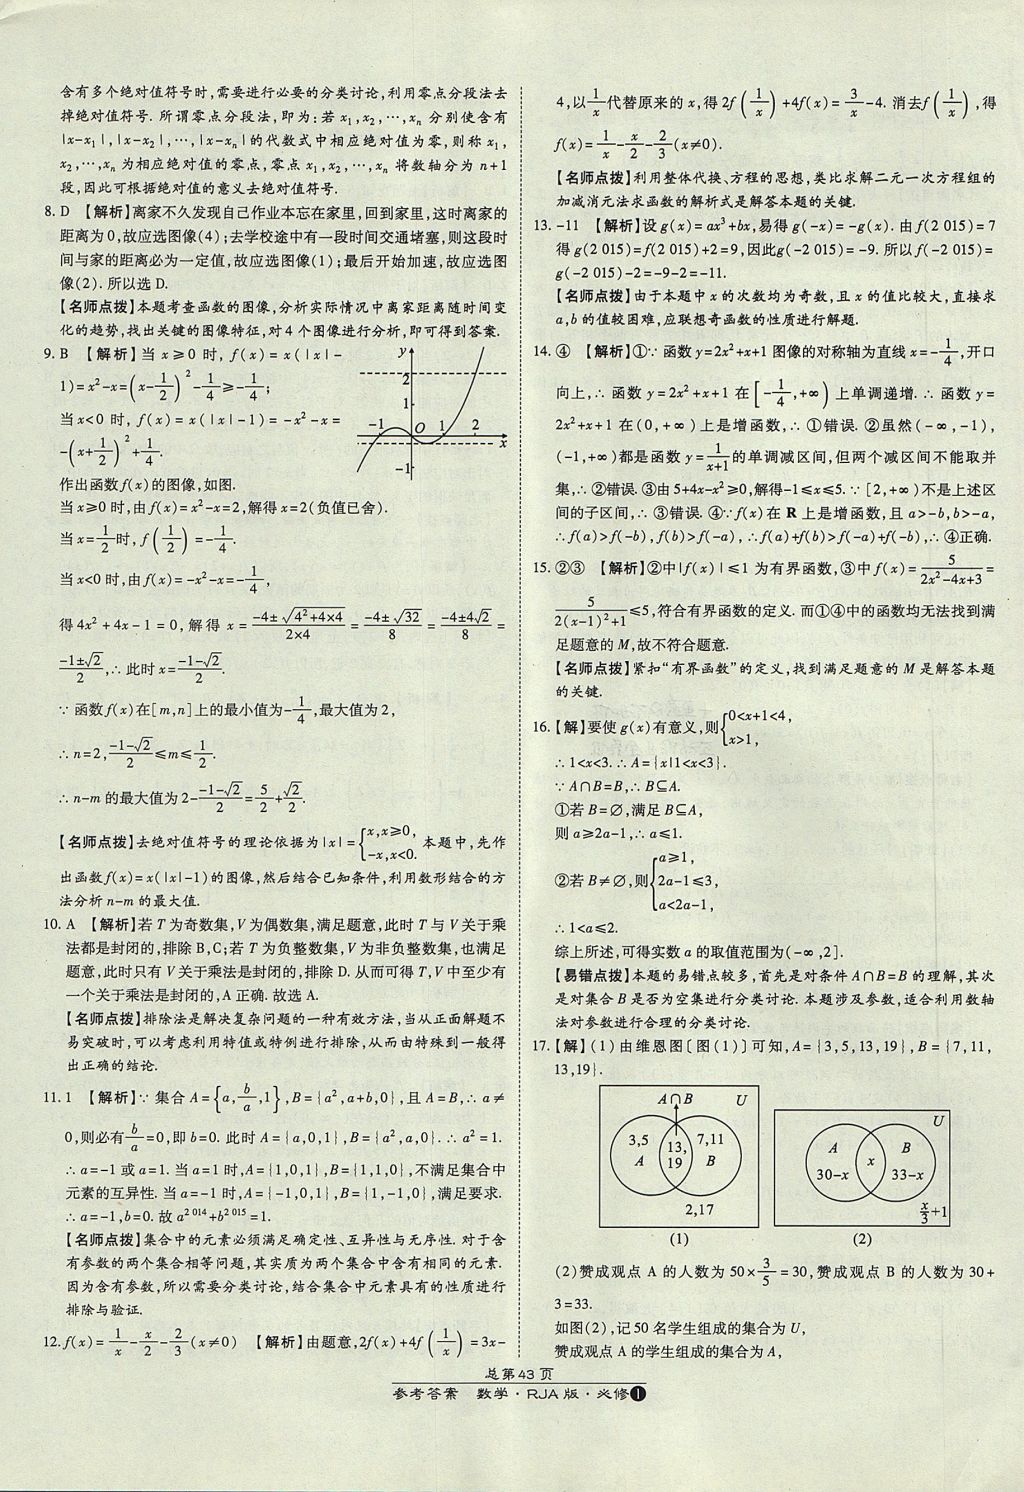 含有多个绝对值符号时,需要进行必要的分类讨论,利用零点分段法去
掉绝对值符号. 所谓零点分段法,即为:若 x₁,x₂,…,xₙ 分别使含有
|x-x₁|,|x-x₂|,…,|x-xₙ|的代数式中相应绝对值为零,则称 x₁,
x₂,…,xₙ 为相应绝对值的零点,零点 x₁,x₂,…,xₙ 将数轴分为 n+1
段,因此可根据绝对值的意义去绝对值符号.
8. D 【解析】离家不久发现自己作业本忘在家里,回到家里,这时离家的
距离为 0,故应选图像(4);去学校途中有一段时间交通堵塞,则这段时
间与家的距离必为一定值,故应选图像(1);最后开始加速,故应选图
像(2). 所以选 D.
【名师点拨】本题考查函数的图像,分析实际情况中离家距离随时间变
化的趋势,找出关键的图像特征,对 4 个图像进行分析,即可得到答案.
9. B 【解析】当 x≥0 时, f(x)=x(|x|-
1)=x²-x=(x-1/2)²-1/4≥-1/4;
当 x<0 时, f(x)=x(|x|-1)=-x²-x=
-(x+1/2)²+1/4.
y
2
1
-1 O 1 2 x
-1
作出函数 f(x)的图像,如图.
当 x≥0 时,由 f(x)=x²-x=2,解得 x=2(负值已舍).
当 x=1/2时, f(1/2)=-1/4.
当 x<0 时,由 f(x)=-x²-x=-1/4,
得 4x²+4x-1=0,解得 x=(-4±√(4²+4×4))/(2×4)=(-4±√32)/8=(-4±4√2)/8=
(-1±√2)/2,∴此时 x=(-1-√2)/2.
∵函数 f(x)在[m,n]上的最小值为-1/4,最大值为 2,
∴n=2,(-1-√2)/2≤m≤1/2.
∴n-m 的最大值为 2-(-1-√2)/2=5/2+√2/2.
【名师点拨】去绝对值符号的理论依据为|x|={x,x≥0, -x,x<0. 本题中,先作
出函数 f(x)=x(|x|-1)的图像,然后结合已知条件,利用数形结合的方
法分析 n-m 的最大值.
10. A 【解析】若 T 为奇数集,V 为偶数集,满足题意,此时 T 与 V 关于乘
法都是封闭的,排除 B,C;若 T 为负整数集,V 为非负整数集,也满足
题意,此时只有 V 关于乘法是封闭的,排除 D. 从而可得 T,V 中至少有
一个关于乘法是封闭的,A 正确. 故选 A.
【名师点拨】排除法是解决复杂问题的一种有效方法,当从正面解题不
易突破时,可以考虑利用特值或特例进行排除,从而由特殊到一般得
出正确的结论.
11. 1 【解析】∵集合 A={a,b/a,1},B={a²,a+b,0},且 A=B,∴a≠
0,则必有b/a=0,即 b=0. 此时 A={a,0,1},B={a²,a,0}.∴a²=1.
∴a=-1 或 a=1. 当 a=1 时,A={1,0,1},B={1,1,0},不满足集合中
元素的互异性. 当 a=-1 时,A={-1,0,1},B={1,-1,0},满足要求.
∴a=-1,b=0. 故 a²⁰¹⁴+b²⁰¹⁵=1.
【名师点拨】集合中的元素必须满足确定性、互异性与无序性. 对于含
有参数的两个集合相等问题,其实质为两个集合中含有相同的元素.
因为含有参数,所以需要分类讨论,结合集合中元素具有的性质进行
排除与验证.
12. f(x)=1/x-x/2-2/3(x≠0) 【解析】由题意,2f(x)+4f(1/x)=3x-
4,以1/x代替原来的 x,得 2f(1/x)+4f(x)=3/x-4. 消去 f(1/x),得
f(x)=1/x-x/2-2/3(x≠0).
【名师点拨】利用整体代换、方程的思想,类比求解二元一次方程组的
加减消元法求函数的解析式是解答本题的关键.
13. -11 【解析】设 g(x)=ax³+bx,易得 g(-x)=-g(x). 由 f(2 015)=7
得 g(2 015)=f(2 015)+2=9,因此 g(-2 015)=-9. 所以 f(-2 015)=
g(-2 015)-2=-9-2=-11.
【名师点拨】由于本题中 x 的次数均为奇数,且 x 的值比较大,直接求
a,b 的值较困难,应联想奇函数的性质进行解题.
14. ④ 【解析】①∵函数 y=2x²+x+1 图像的对称轴为直线 x=-1/4,开口
向上,∴函数 y=2x²+x+1 在[-1/4,+∞)上单调递增.∴函数 y=
2x²+x+1 在(0,+∞)上是增函数,∴①错误. ②虽然(-∞,-1),
(-1,+∞)都是函数 y=1/(x+1)的单调减区间,但两个减区间不能取并
集,∴②错误. ③由 5+4x-x²≥0,解得-1≤x≤5.∵[2,+∞)不是上述区
间的子区间,∴③错误. ④∵f(x)在 R 上是增函数,且 a>-b,b>-a,
∴f(a)>f(-b),f(b)>f(-a),∴f(a)+f(b)>f(-a)+f(-b),∴④正确.
15. ②③ 【解析】②中|f(x)|≤1 为有界函数,③中 f(x)=5/(2x²-4x+3)=
5/(2(x-1)²+1)≤5,符合有界函数的定义. 而①④中的函数均无法找到满
足题意的 M,故不符合题意.
【名师点拨】紧扣“有界函数”的定义,找到满足题意的 M 是解答本题
的关键.
16.【解】要使 g(x)有意义,则{0<x+1<4, x>1,
∴1<x<3.∴A={x|1<x<3}.
∵A∩B=B,∴B⊆A.
①若 B=∅,满足 B⊆A,
则 a≥2a-1,∴a≤1.
②若 B≠∅,则{a≥1, 2a-1≤3, a<2a-1,
∴1<a≤2.
综上所述,可得实数 a 的取值范围为(-∞,2].
【易错点拨】本题的易错点较多,首先是对条件 A∩B=B 的理解,其次
是对集合 B 是否为空集进行分类讨论. 本题涉及参数,适合利用数轴
法对参数进行合理的分类讨论.
17.【解】(1)由维恩图〔图(1)〕可知,A={3,5,13,19},B={7,11,
13,19}.
A∩B U
3,5 13, 7,11
A 19 B
2,17
(1)
U
A B
30-x x 33-x
x/3+1
(2)
(2)赞成观点 A 的人数为 50×3/5=30,赞成观点 B 的人数为 30+
3=33.
如图(2),记 50 名学生组成的集合为 U,
赞成观点 A 的学生组成的集合为 A,
总第 43 页
参考答案 数学·RJA 版·必修❶